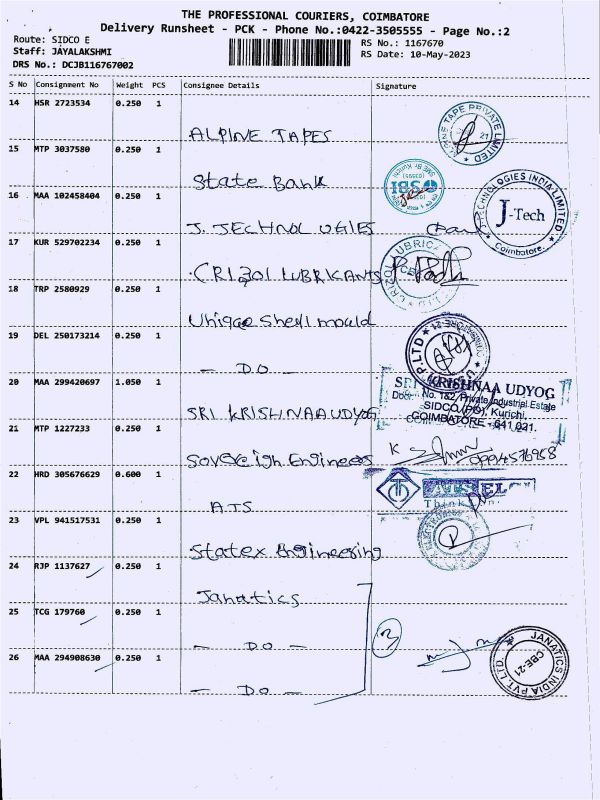 THE PROFESSIONAL COURIERS, COIMBATORE
Delivery Runsheet - PCK - Phone No.:0422-3505555 - Page No.:2
Route: SIDCO E
Staff: JAYALAKSHMI
DRS No.: DCJB116767002
RS No.: 1167670
RS Date: 10-May-2023
S No Consignment No Weight PCS Consignee Details Signature
14 HSR 2723534 0.250 1
ALPINE TAPES
15 MTP 3037580 0.250 1
State Bank
SBI
16 MAA 102458404 0.250 1
J. TECHNOLOGIES
TECHNOLOGIES INDIA LIMITED
J-Tech
Coimbatore.
17 KUR 529702234 0.250 1
CRIZOL LUBRICANTS
18 TRP 2580929 0.250 1
Unique Shell mould
19 DEL 250173214 0.250 1
- DO -
20 MAA 299420697 1.050 1
SRI KRISHNAA UDYOG
SRI KRISHNAA UDYOG
Door No. 1&2, Private Industrial Estate
SIDCO (PO), Kurichi,
COIMBATORE - 641 021.
21 MTP 1227233 0.250 1
Sovereign Engineers
22 HRD 305676629 0.600 1
ATS
ATS ELC
Think
23 VPL 941517531 0.250 1
Statex Engineering
24 RJP 1137627 0.250 1
Janatics
25 TCG 179760 0.250 1
- DO -
3
26 MAA 294908630 0.250 1
- DO -
JANATICS INDIA PVT. LTD.
CBE-21